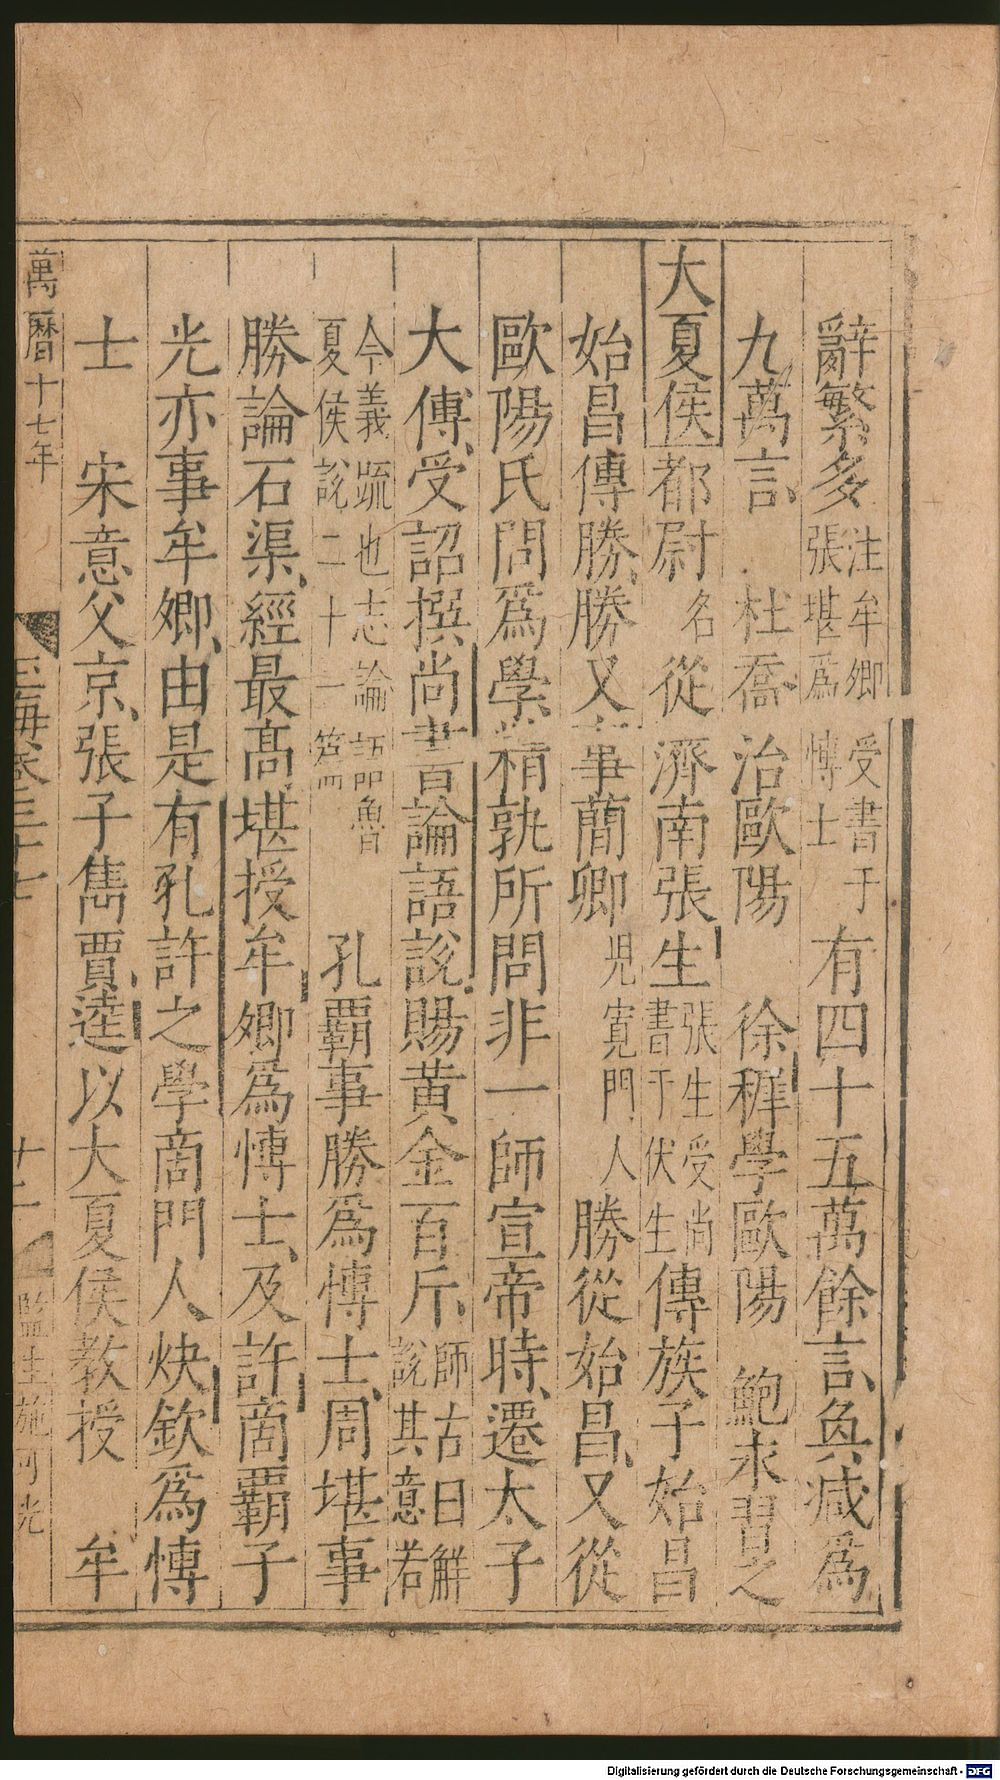 辭繁多注牟卿受書于張堪爲愽士有四十五萬餘言奐减爲
九萬言　杜喬治歐陽　徐穉學歐陽　鮑永習之
大夏侯都尉名從濟南張生張生受尚書于伏生傳族子始昌
始昌傳勝勝又事蕳卿児寛門人勝從始昌又從
歐陽氏問爲學精孰所問非一師宣帝時遷太子
大傅受詔撰尚書論語説賜黄金百斤師古曰解説其意若
今義䟽也志論語魯夏侯説二十一篇孔霸事勝爲愽士周堪事
勝論石渠經最髙堪授牟卿爲愽士及許商霸子
光亦事牟卿由是有孔許之學商門人炔欽爲愽
士　宋意父京張子雋賈逵以大夏侯教授　牟
萬曆十七年　玉海卷三十七　十二　監生施可光
Digitalisierung gefördert durch die Deutsche Forschungsgemeinschaft - DFG